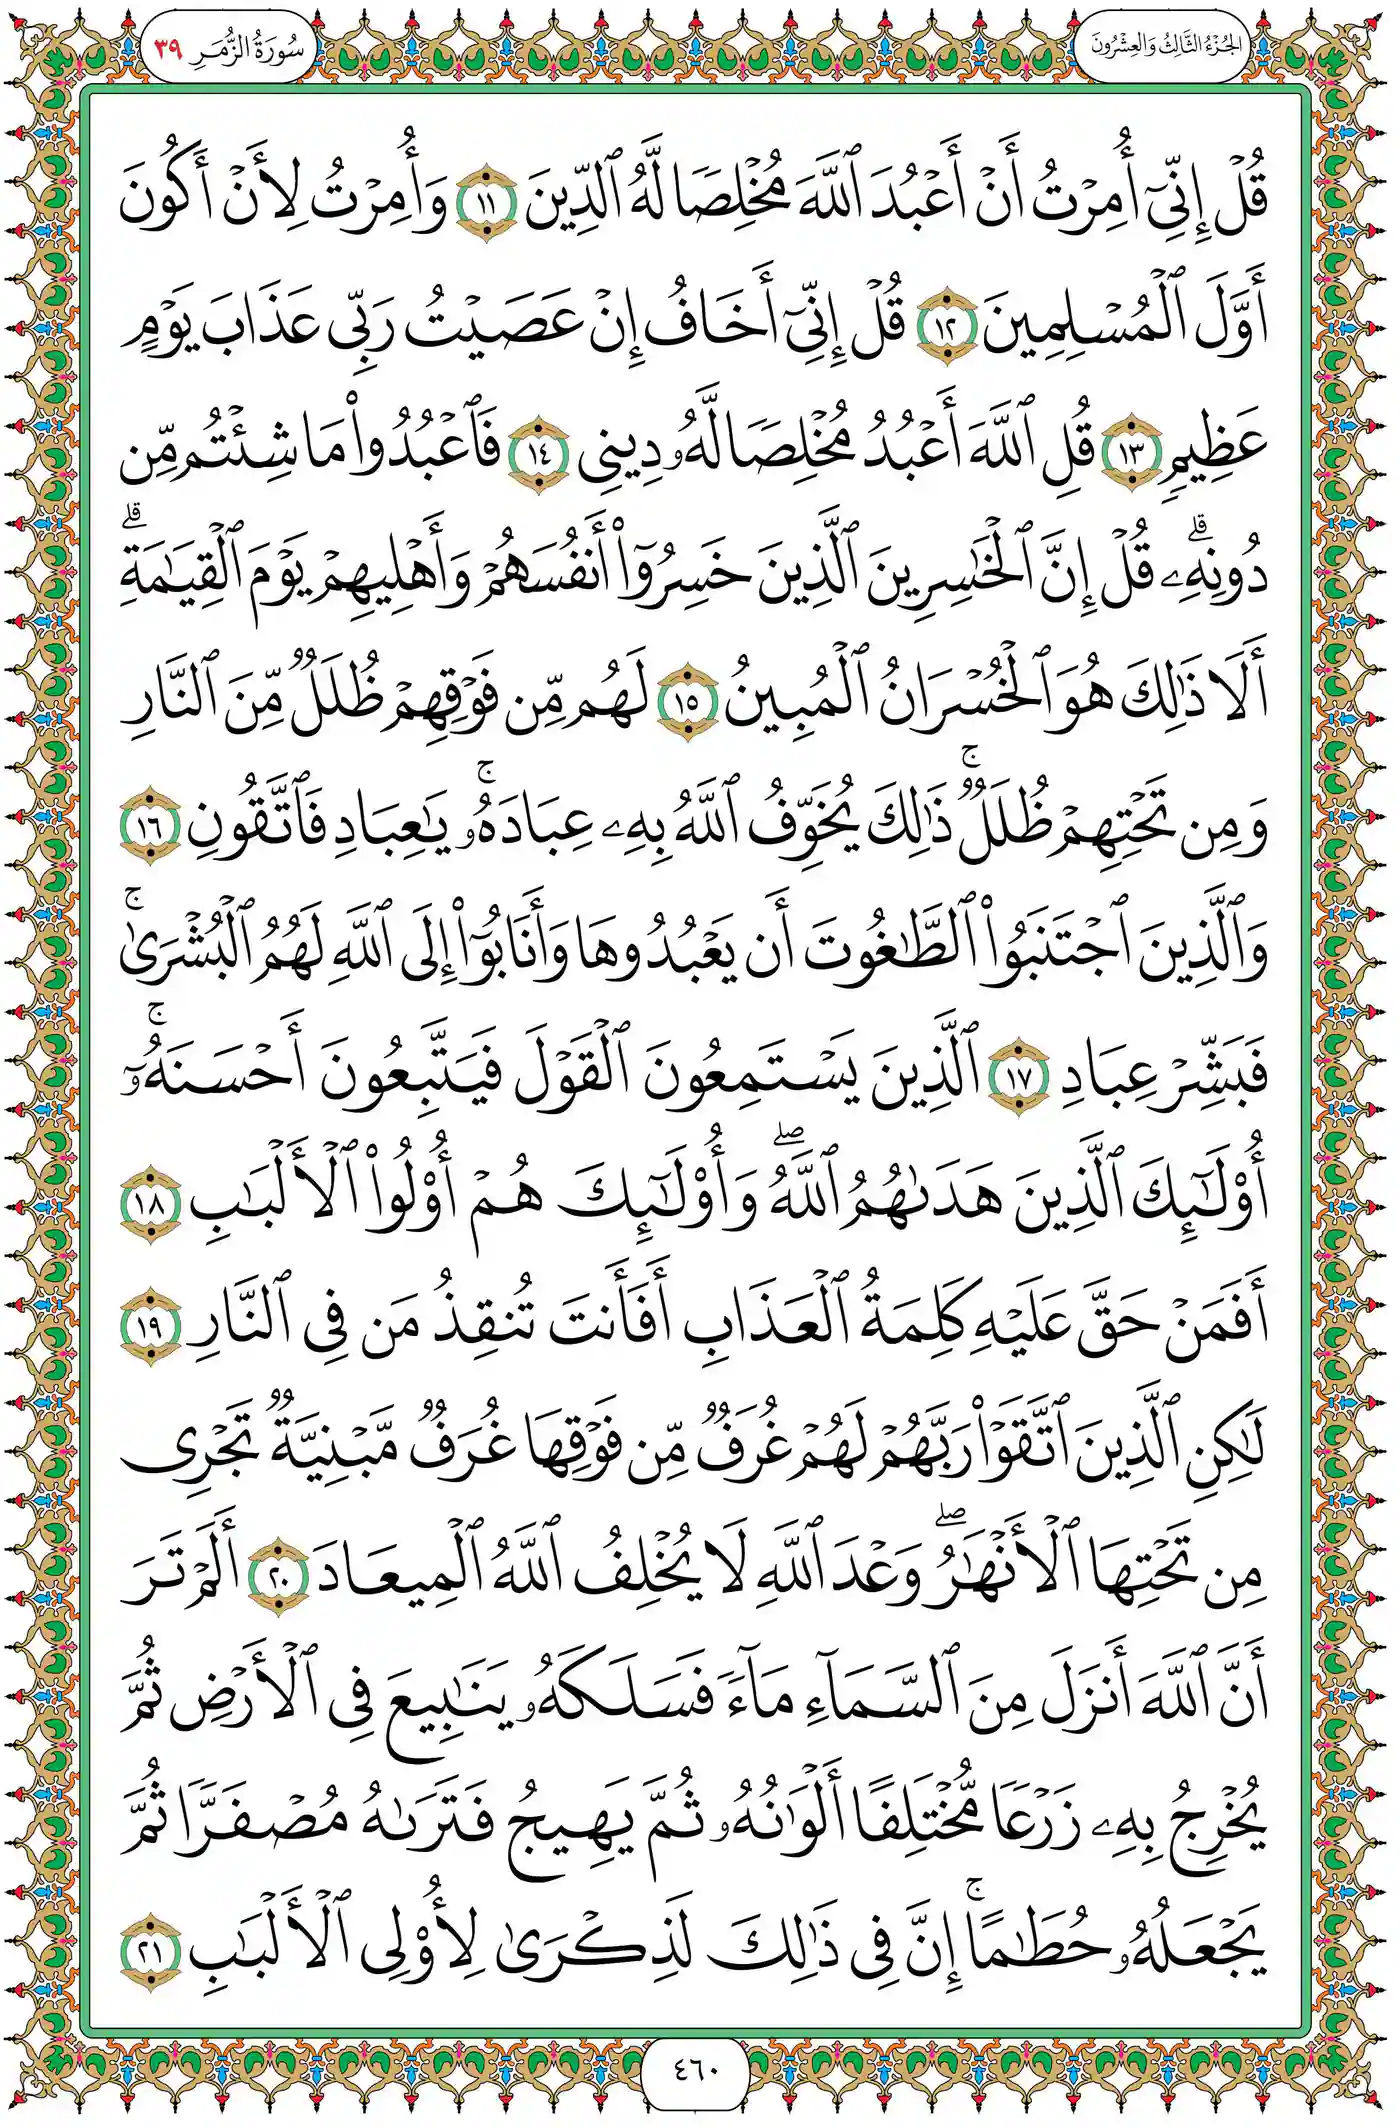 الجُزْءُ الثَّالِثُ وَالعِشْرُونَ
سُورَةُ الزُّمَرِ ٣٩
قُلۡ إِنِّيٓ أُمِرۡتُ أَنۡ أَعۡبُدَ ٱللَّهَ مُخۡلِصٗا لَّهُ ٱلدِّينَ ١١ وَأُمِرۡتُ لِأَنۡ أَكُونَ
أَوَّلَ ٱلۡمُسۡلِمِينَ ١٢ قُلۡ إِنِّيٓ أَخَافُ إِنۡ عَصَيۡتُ رَبِّي عَذَابَ يَوۡمٍ
عَظِيمٖ ١٣ قُلِ ٱللَّهَ أَعۡبُدُ مُخۡلِصٗا لَّهُۥ دِينِي ١٤ فَٱعۡبُدُواْ مَا شِئۡتُم مِّن
دُونِهِۦۗ قُلۡ إِنَّ ٱلۡخَٰسِرِينَ ٱلَّذِينَ خَسِرُوٓاْ أَنفُسَهُمۡ وَأَهۡلِيهِمۡ يَوۡمَ ٱلۡقِيَٰمَةِۗ
أَلَا ذَٰلِكَ هُوَ ٱلۡخُسۡرَانُ ٱلۡمُبِينُ ١٥ لَهُم مِّن فَوۡقِهِمۡ ظُلَلٞ مِّنَ ٱلنَّارِ
وَمِن تَحۡتِهِمۡ ظُلَلٞۚ ذَٰلِكَ يُخَوِّفُ ٱللَّهُ بِهِۦ عِبَادَهُۥۚ يَٰعِبَادِ فَٱتَّقُونِ ١٦
وَٱلَّذِينَ ٱجۡتَنَبُواْ ٱلطَّٰغُوتَ أَن يَعۡبُدُوهَا وَأَنَابُوٓاْ إِلَى ٱللَّهِ لَهُمُ ٱلۡبُشۡرَىٰۚ
فَبَشِّرۡ عِبَادِ ١٧ ٱلَّذِينَ يَسۡتَمِعُونَ ٱلۡقَوۡلَ فَيَتَّبِعُونَ أَحۡسَنَهُۥٓۚ
أُوْلَٰٓئِكَ ٱلَّذِينَ هَدَىٰهُمُ ٱللَّهُۖ وَأُوْلَٰٓئِكَ هُمۡ أُوْلُواْ ٱلۡأَلۡبَٰبِ ١٨
أَفَمَنۡ حَقَّ عَلَيۡهِ كَلِمَةُ ٱلۡعَذَابِ أَفَأَنتَ تُنقِذُ مَن فِي ٱلنَّارِ ١٩
لَٰكِنِ ٱلَّذِينَ ٱتَّقَوۡاْ رَبَّهُمۡ لَهُمۡ غُرَفٞ مِّن فَوۡقِهَا غُرَفٞ مَّبۡنِيَّةٞ تَجۡرِي
مِن تَحۡتِهَا ٱلۡأَنۡهَٰرُۖ وَعۡدَ ٱللَّهِ لَا يُخۡلِفُ ٱللَّهُ ٱلۡمِيعَادَ ٢٠ أَلَمۡ تَرَ
أَنَّ ٱللَّهَ أَنزَلَ مِنَ ٱلسَّمَآءِ مَآءٗ فَسَلَكَهُۥ يَنَٰبِيعَ فِي ٱلۡأَرۡضِ ثُمَّ
يُخۡرِجُ بِهِۦ زَرۡعٗا مُّخۡتَلِفًا أَلۡوَٰنُهُۥ ثُمَّ يَهِيجُ فَتَرَىٰهُ مُصۡفَرّٗا ثُمَّ
يَجۡعَلُهُۥ حُطَٰمًاۚ إِنَّ فِي ذَٰلِكَ لَذِكۡرَىٰ لِأُوْلِي ٱلۡأَلۡبَٰبِ ٢١
٤٦٠